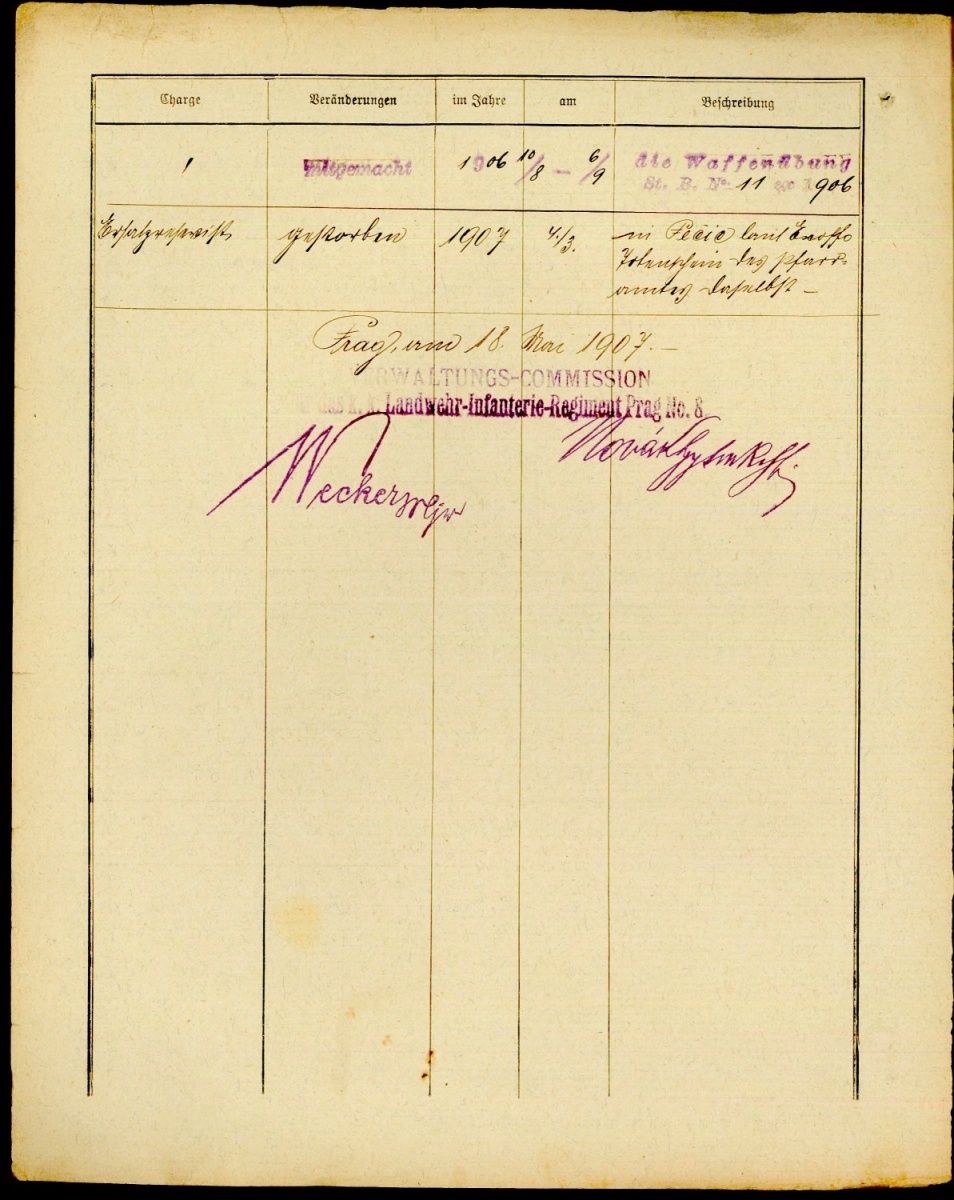 Charge Veränderungen im Jahre am Beschreibung
Mitgemacht 1906 10/8 — 6/9 die Waffenübung
St. B. No. 11 1906
Ersatzreservist gestorben 1907 4./3. in Pečic laut
Totenschein des Pfarr-
amtes daselbst —
Prag, am 18. Mai 1907. —
VERWALTUNGS-COMMISSION
das k. k. Landwehr-Infanterie-Regiment Prag No. 8
Novák
Wecker